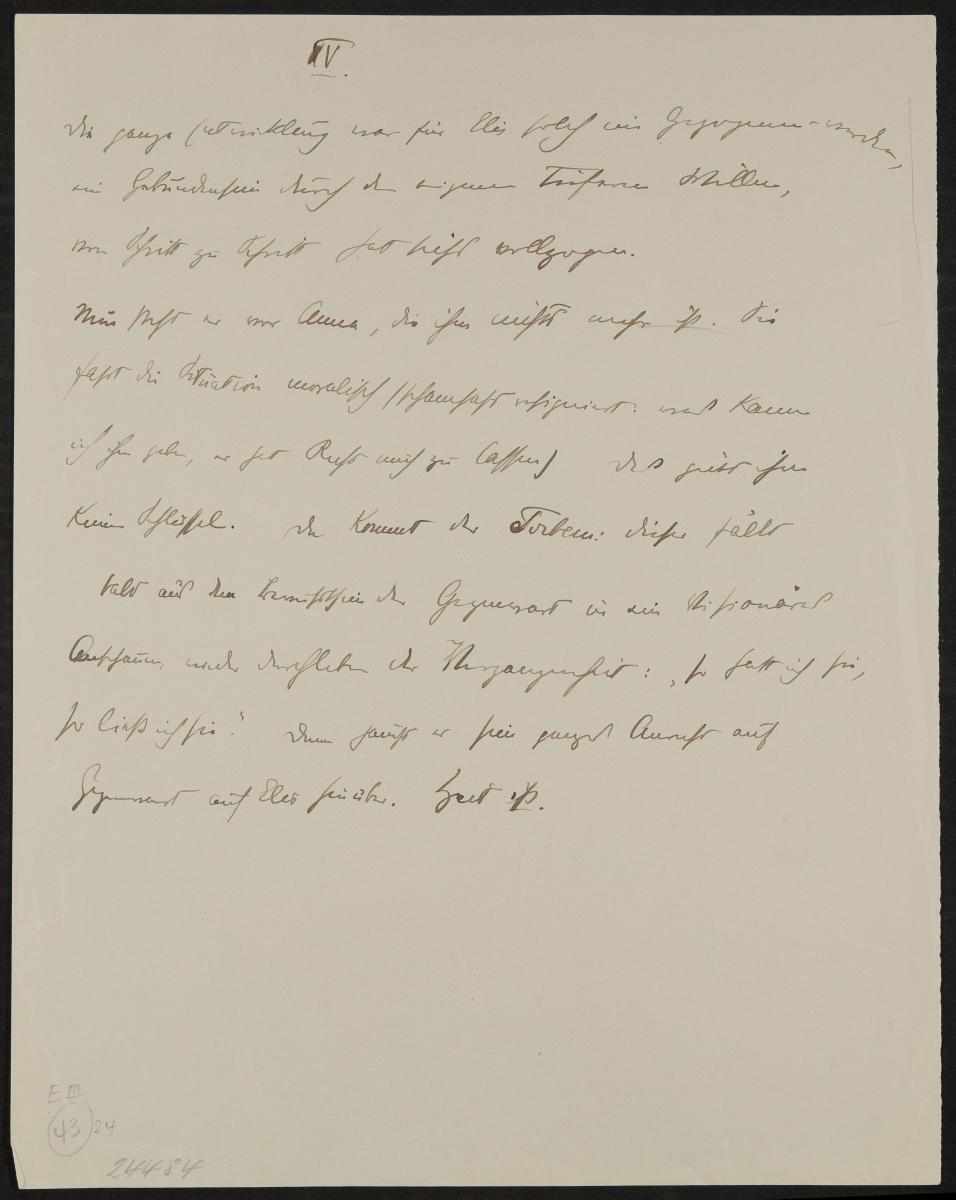 IV.
Die ganze Entwicklung war für Elis solch ein Gezogenwerden,
ein Gebundensein durch den eigenen tieferen Willen,
von Schritt zu Schritt hat sichs vollzogen.
Nun steht er vor Anna, die ihm nichts mehr ist. Sie
fasst die Situation moralisch (schamhaft resigniert: was kann
ich ihm geben, er hat Recht mich zu lassen) das giebt ihm
keinen Schlüssel. Da kommt der Torbern: dieser fällt
bald aus dem Bewusstsein der Gegenwart in ein visionäres
Anschauen, wieder durchleben der Vergangenheit: „so hatt ich sie,
so ließ ich sie." Dann
er sein ganzes Anrecht auf
Gegenwart auf Elis hinüber. Zeit ist.
E III
43 24
24484